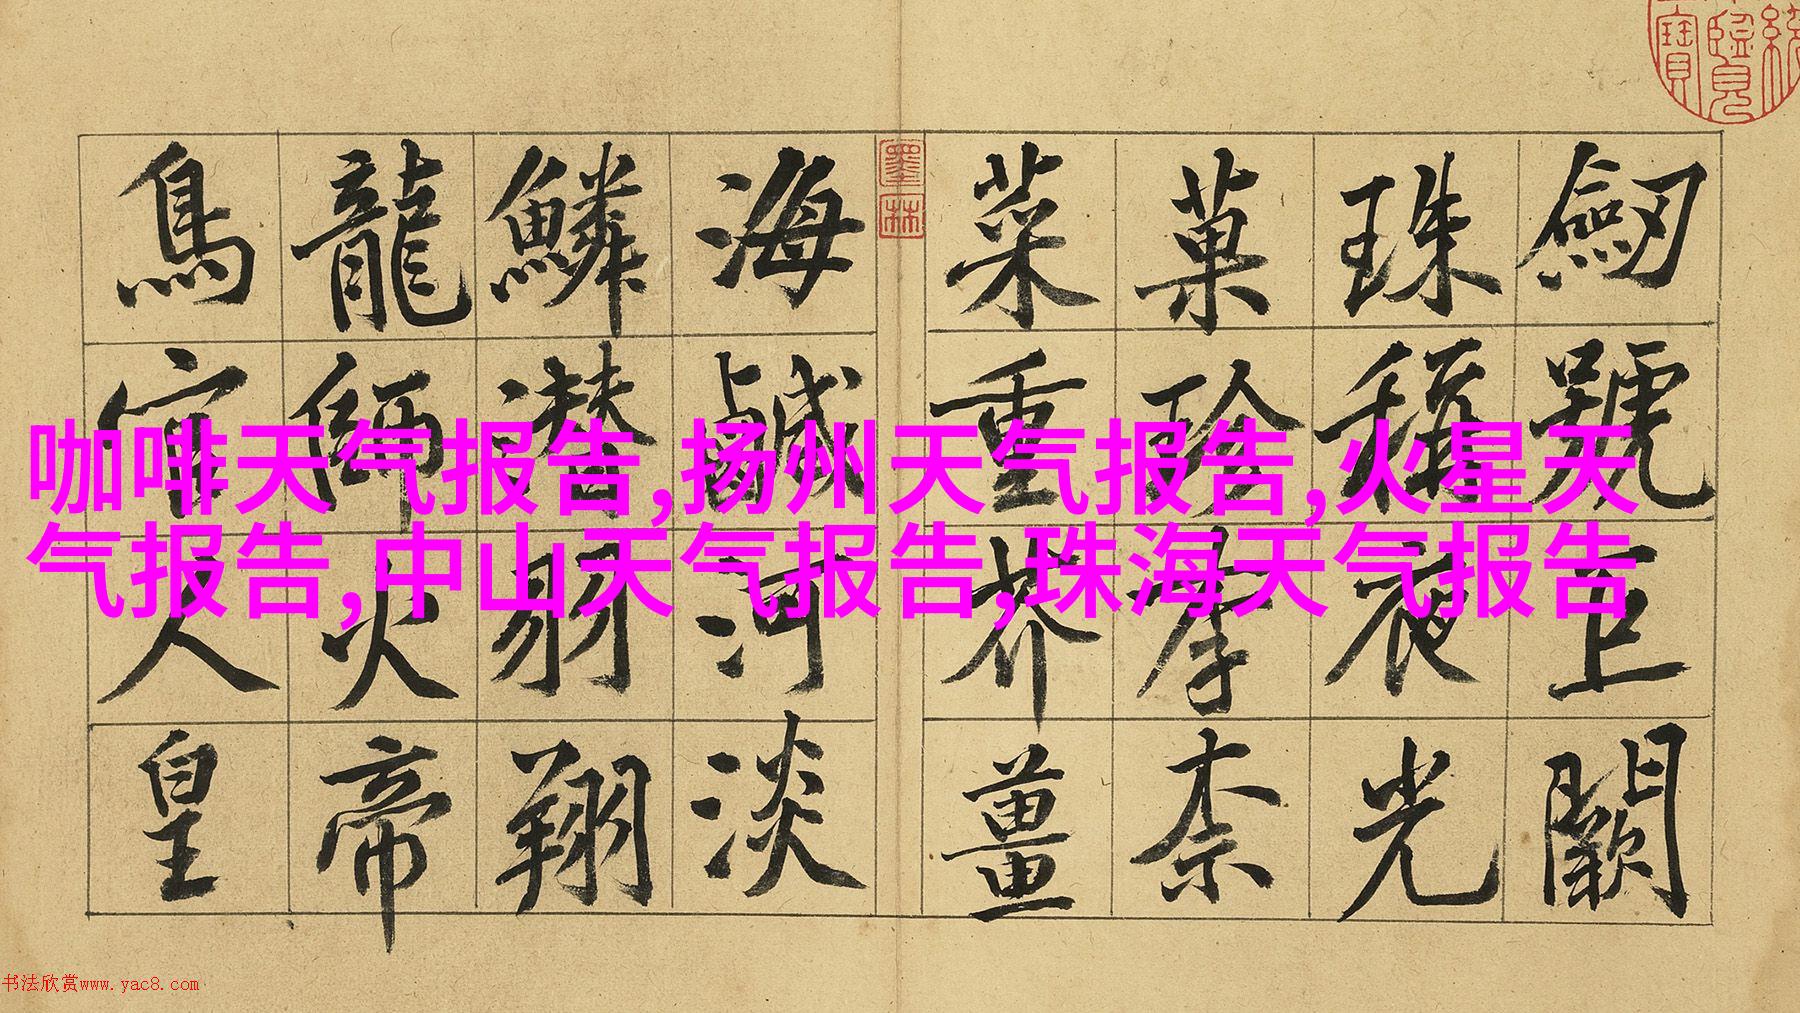 劒號巨闕
珠稱夜光
菓珍李柰
菜重芥薑
海鹹河淡
鱗潜羽翔
龍師火帝
鳥官人皇
墨林
咖啡天气报告,扬州天气报告,火星天
气报告,中山天气报告,珠海天气报告
书法欣赏www.yac8.com